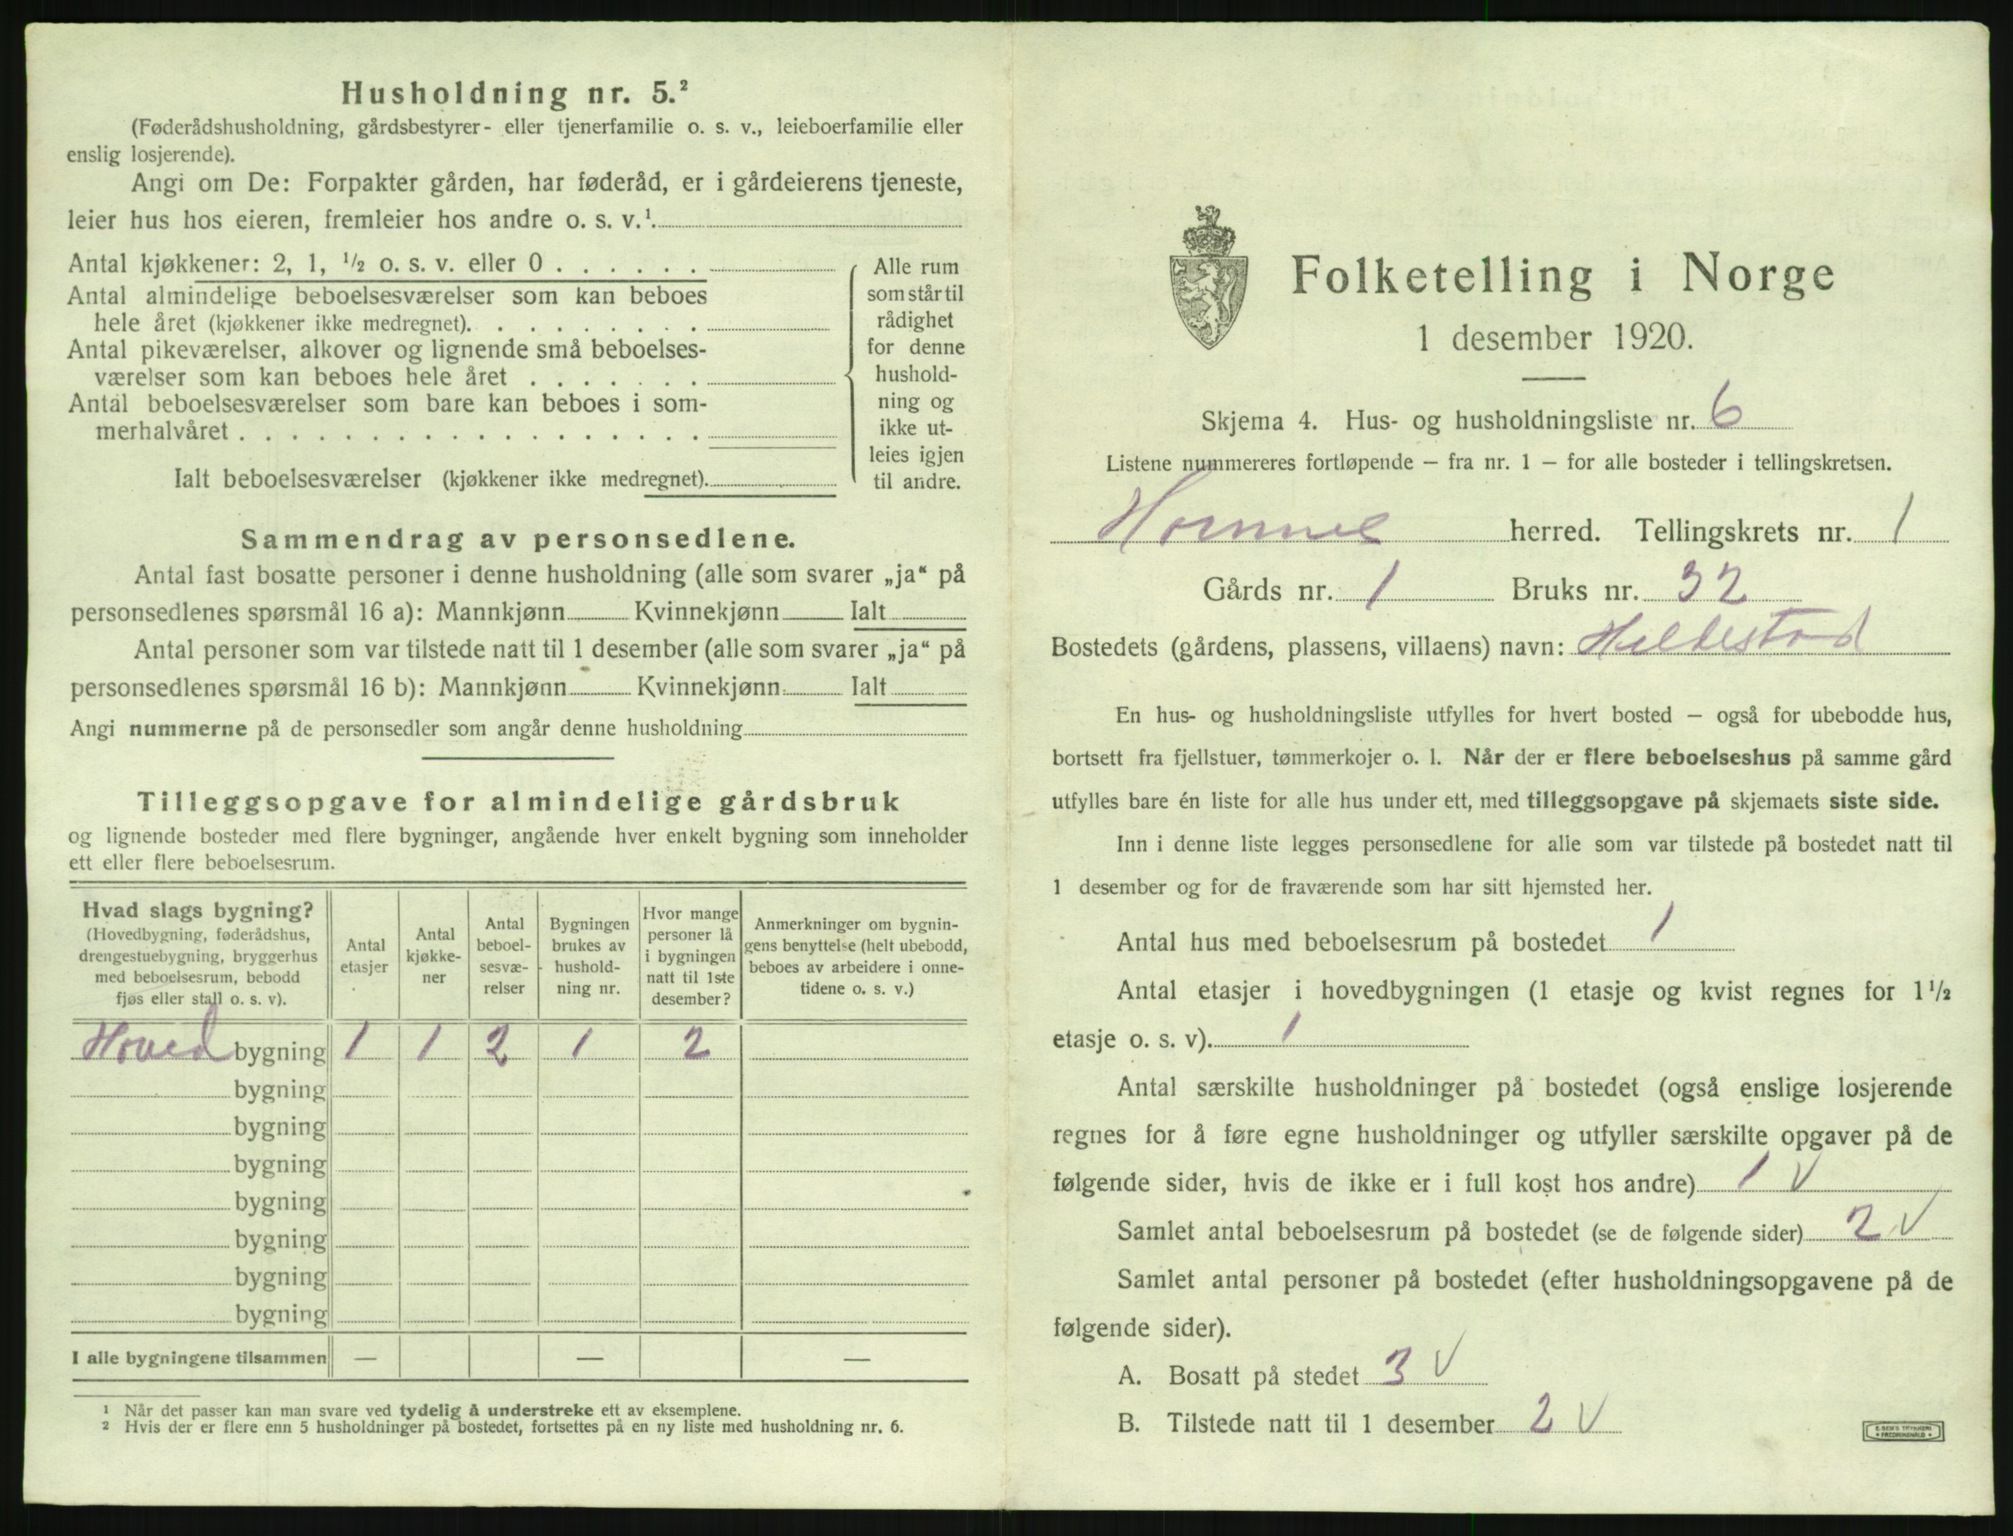 Husholdning nr. 5.²
(Føderådshusholdning, gårdsbestyrer- eller tjenerfamilie o. s. v., leieboerfamilie eller
enslig losjerende).
Angi om De: Forpakter gården, har føderåd, er i gårdeierens tjeneste,
leier hus hos eieren, fremleier hos andre o. s. v.¹
Antal kjøkkener: 2, 1, ½ o. s. v. eller 0 . . . . . .
Antal almindelige beboelsesværelser som kan beboes
hele året (kjøkkener ikke medregnet). . . . . . . . .
Antal pikeværelser, alkover og lignende små beboelses-
værelser som kan beboes hele året . . . . . . .
Antal beboelsesværelser som bare kan beboes i som-
merhalvåret . . . . . . . . . . . . . . . . . .
Ialt beboelsesværelser (kjøkkener ikke medregnet).
Alle rum
som står til
rådighet
for denne
hushold-
ning og
ikke ut-
leies igjen
til andre.
Sammendrag av personsedlene.
Antal fast bosatte personer i denne husholdning (alle som svarer „ja“ på
personsedlenes spørsmål 16 a): Mannkjønn Kvinnekjønn Ialt
Antal personer som var tilstede natt til 1 desember (alle som svarer „ja“ på
personsedlenes spørsmål 16 b): Mannkjønn Kvinnekjønn Ialt
Angi nummerne på de personsedler som angår denne husholdning
Tilleggsopgave for almindelige gårdsbruk
og lignende bosteder med flere bygninger, angående hver enkelt bygning som inneholder
ett eller flere beboelsesrum.
Hvad slags bygning?
(Hovedbygning, føderådshus,
drengestuebygning, bryggerhus
med beboelsesrum, bebodd
fjøs eller stall o. s. v).
Antal
etasjer
Antal
kjøkke-
ner
Antal
beboel-
sesvæ-
relser
Bygningen
brukes av
hushold-
ning nr.
Hvor mange
personer lå
i bygningen
natt til 1ste
desember?
Anmerkninger om bygnin-
gens benyttelse (helt ubebodd,
beboes av arbeidere i onne-
tidene o. s. v.)
Hoved bygning 1 1 2 1 2
bygning
bygning
bygning
bygning
bygning
bygning
bygning
I alle bygningene tilsammen — — —
¹ Når det passer kan man svare ved tydelig å understreke ett av eksemplene.
² Hvis der er flere enn 5 husholdninger på bostedet, fortsettes på en ny liste med husholdning nr. 6.
Folketelling i Norge
1 desember 1920.
Skjema 4. Hus- og husholdningsliste nr. 6
Listene nummereres fortløpende — fra nr. 1 — for alle bosteder i tellingskretsen.
herred. Tellingskrets nr. 1
Gårds nr. 1 Bruks nr. 32
Bostedets (gårdens, plassens, villaens) navn: Hildestad
En hus- og husholdningsliste utfylles for hvert bosted — også for ubebodde hus,
bortsett fra fjellstuer, tømmerkojer o. l. Når der er flere beboelseshus på samme gård
utfylles bare én liste for alle hus under ett, med tilleggsopgave på skjemaets siste side.
Inn i denne liste legges personsedlene for alle som var tilstede på bostedet natt til
1 desember og for de fraværende som har sitt hjemsted her.
Antal hus med beboelsesrum på bostedet 1
Antal etasjer i hovedbygningen (1 etasje og kvist regnes for 1½
etasje o. s. v). 1
Antal særskilte husholdninger på bostedet (også enslige losjerende
regnes for å føre egne husholdninger og utfyller særskilte opgaver på de
følgende sider, hvis de ikke er i full kost hos andre) 1 V
Samlet antal beboelsesrum på bostedet (se de følgende sider) 2 V
Samlet antal personer på bostedet (efter husholdningsopgavene på de
følgende sider).
A. Bosatt på stedet 3 V
B. Tilstede natt til 1 desember 2 V